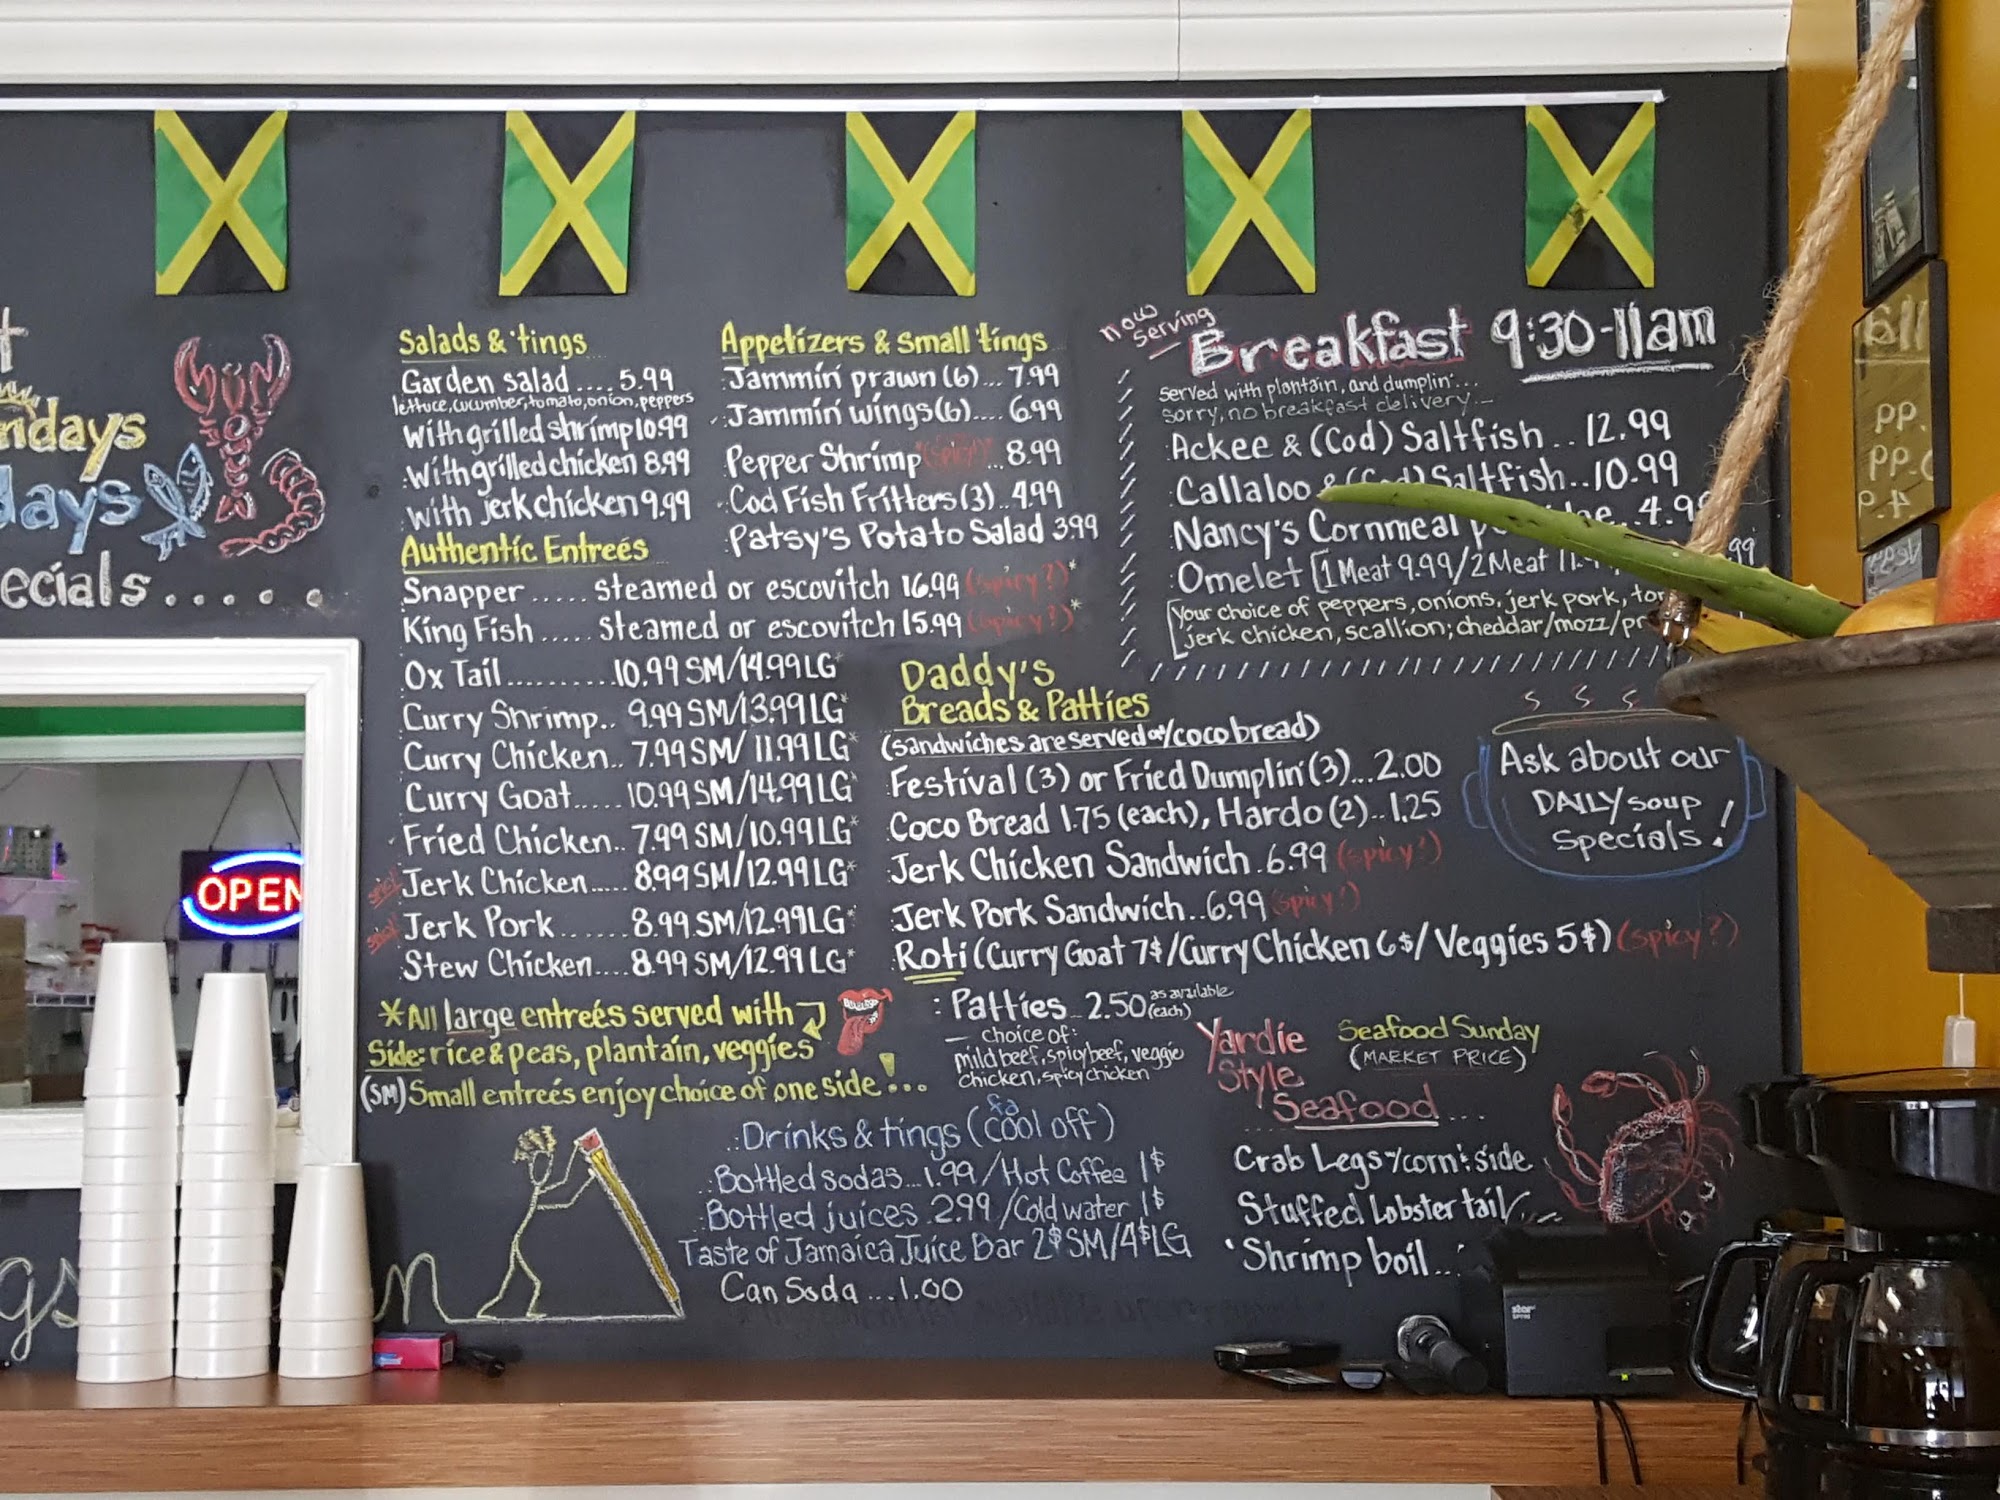 ndays
days
ecials.....
OPEN
Salads & 'tings
Garden salad .... 5.99
lettuce, cucumber, tomato, onion, peppers
with grilled shrimp 10.99
with grilled chicken 8.99
with jerk chicken 9.99
Authentic Entreés
Snapper ..... steamed or escovitch 16.99 (spicy?)*
King Fish ..... steamed or escovitch 15.99 (spicy?)*
Ox Tail.......... 10.99 SM/14.99 LG*
Curry Shrimp.. 9.99 SM/13.99 LG*
Curry Chicken.. 7.99 SM/ 11.99 LG*
Curry Goat..... 10.99 SM/14.99 LG*
Fried Chicken.. 7.99 SM/10.99 LG*
spicy! Jerk Chicken..... 8.99 SM/12.99 LG*
spicy! Jerk Pork ....... 8.99 SM/12.99 LG*
Stew Chicken.... 8.99 SM/12.99 LG*
*All large entreés served with
Side: rice & peas, plantain, veggies
(SM) Small entreés enjoy choice of one side!...
Appetizers & small 'tings
Jammin' prawn (6)... 7.99
Jammin' wings (6).... 6.99
Pepper Shrimp (spicy!) ... 8.99
Cod Fish Fritters (3).. 4.99
Patsy's Potato Salad 3.99
now serving
Breakfast 9:30-11am
served with plantain, and dumplin'...
sorry, no breakfast delivery...
Ackee & (Cod) Saltfish .. 12.99
Callaloo & (Cod) Saltfish.. 10.99
Nancy's Cornmeal
4.99
Omelet [1 Meat 9.99/2 Meat 11.
[Your choice of peppers, onions, jerk pork,
jerk chicken, scallion; cheddar/mozz/
Daddy's
Breads & Patties
(sandwiches are served w/coco bread)
Festival (3) or Fried Dumplin' (3)... 2.00
Coco Bread 1.75 (each), Hardo (2).. 1.25
Jerk Chicken Sandwich . 6.99 (spicy!)
Jerk Pork Sandwich.. 6.99 (spicy!)
Roti (Curry Goat 7$/Curry Chicken 6$/ Veggies 5$) (spicy?)
: Patties . 2.50 (each) as available
— choice of:
mild beef, spicy beef, veggie
chicken, spicy chicken
Ask about our
DAILY soup
Specials!
Yardie
Style
Seafood ...
Seafood Sunday
(MARKET PRICE)
Crab Legs w/corn & side
Stuffed Lobster tail
Shrimp boil...
Drinks & tings (fa cool off)
Bottled sodas... 1.99 / Hot Coffee 1$
Bottled juices . 2.99 / Cold water 1$
Taste of Jamaica Juice Bar 2$ SM/4$ LG
Can Soda ... 1.00
star